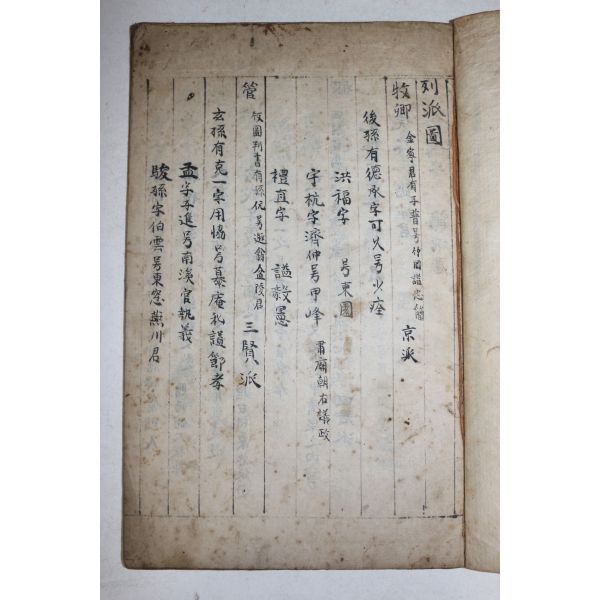 列派圖
牧卿 金寧君有子普号 謚忠簡 京派
後孫有德承字可久号少痊
洪福字 号東園
宇杭字濟仲号甲峰 肅廟朝右議政
禮直字 謚毅憲
管 版圖判書有孫伉号遊翁金陵君 三賢派
玄孫有克一字用恊号慕庵私謚節孝
孟字子進号南溪官執義
駿孫字伯雲号東窓燕川君